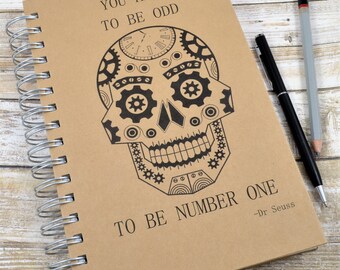 YOU
TO BE ODD
TO BE NUMBER ONE
-Dr Seuss